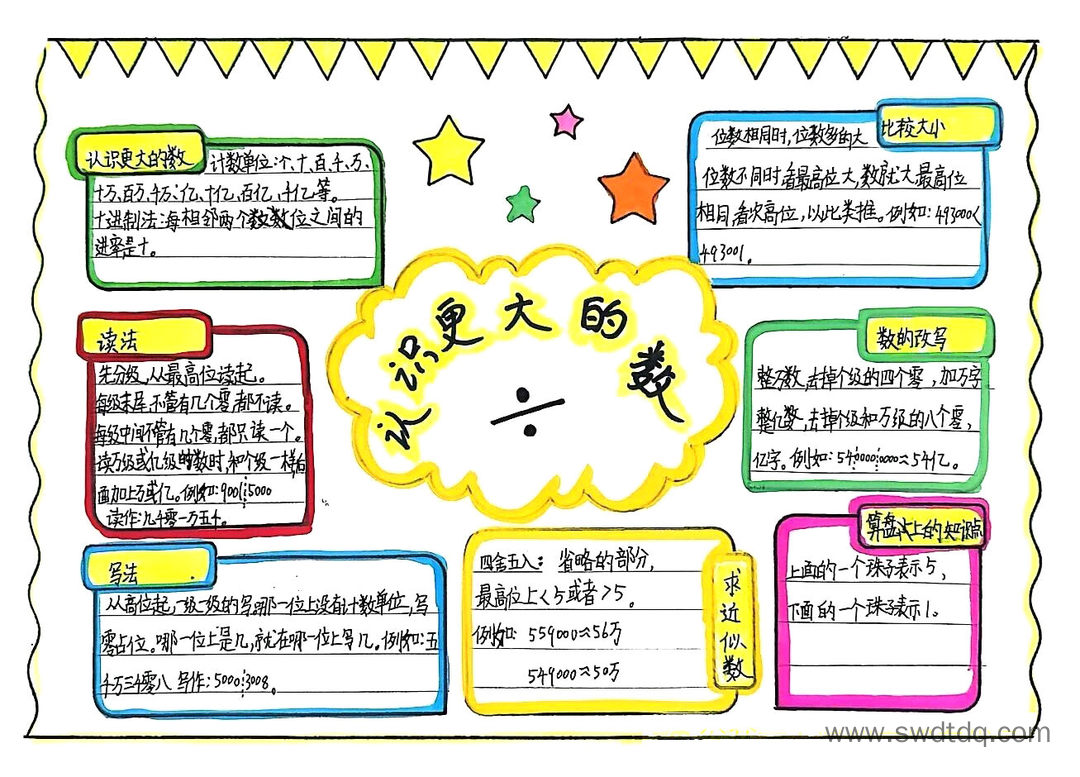 认识更大的数
认识更大的数
计数单位:个、十、百、千、万、
十万、百万、千万、亿、十亿、百亿、千亿等。
十进制法:每相邻两个数数位之间的
进率是十。
比较大小
位数相同时,位数多的大
位数不同时,看最高位大,数就大最高位
相同,看次高位,以此类推。例如:493000<
493001。
读法
先分级,从最高位读起。
每级末尾,不管有几个零,都不读。
每级中间不管有几个零,都只读一个。
读万级或亿级的数时,和个级一样,后
面加上万或亿。例如:9001┊5000
读作:九千零一万五千。
数的改写
整万数,去掉个级的四个零,加万字
整亿数,去掉个级和万级的八个零,
亿字。例如:54┊0000┊0000≈54亿。
写法
从高位起,一级一级的写,哪一位上没有计数单位,写
零占位。哪一位上是几,就在哪一位上写几。例如:五
千万三千零八 写作:5000┊3008。
求近似数
四舍五入:省略的部分,
最高位上<5或者>5。
例如:559000≈56万
549000≈50万
算盘上的知识点
上面的一个珠子表示5,
下面的一个珠子表示1。
www.swdtdq.com